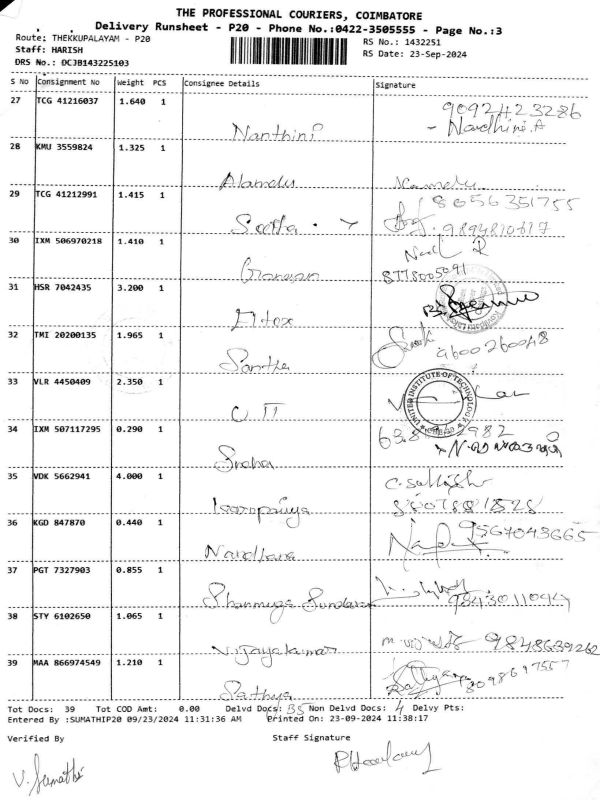 THE PROFESSIONAL COURIERS, COIMBATORE
Delivery Runsheet - P20 - Phone No.:0422-3505555 - Page No.:3
Route: THEKKUPALAYAM - P20
Staff: HARISH
DRS No.: DCJB143225103
RS No.: 1432251
RS Date: 23-Sep-2024
S No Consignment No Weight PCS Consignee Details Signature
27 TCG 41216037 1.640 1 Nanthini 9092423286
- Nandhini.A
28 KMU 3559824 1.325 1
Alamelu
29 TCG 41212991 1.415 1 Seetha 8056351755
30 IXM 506970218 1.410 1
8778005091
31 HSR 7042435 3.200 1
Eltox
32 TMI 20200135 1.965 1 Santha
9600260048
33 VLR 4450409 2.350 1 UIT
UNITED INSTITUTE OF TECHNOLOGY
34 IXM 507117295 0.290 1
Sneha
35 VDK 5662941 4.000 1 C. Sathish
36 KGD 847870 0.440 1 9567043665
Nandhana
37 PGT 7327903 0.855 1
Shanmuga Sundaram
38 STY 6102650 1.065 1
Vijayakumar
39 MAA 866974549 1.210 1
Sathya
Tot Docs: 39 Tot COD Amt: 0.00 Delvd Docs: 35 Non Delvd Docs: 4 Delvy Pts:
Entered By :SUMATHIP20 09/23/2024 11:31:36 AM Printed On: 23-09-2024 11:38:17
Verified By Staff Signature
V. Sumathi